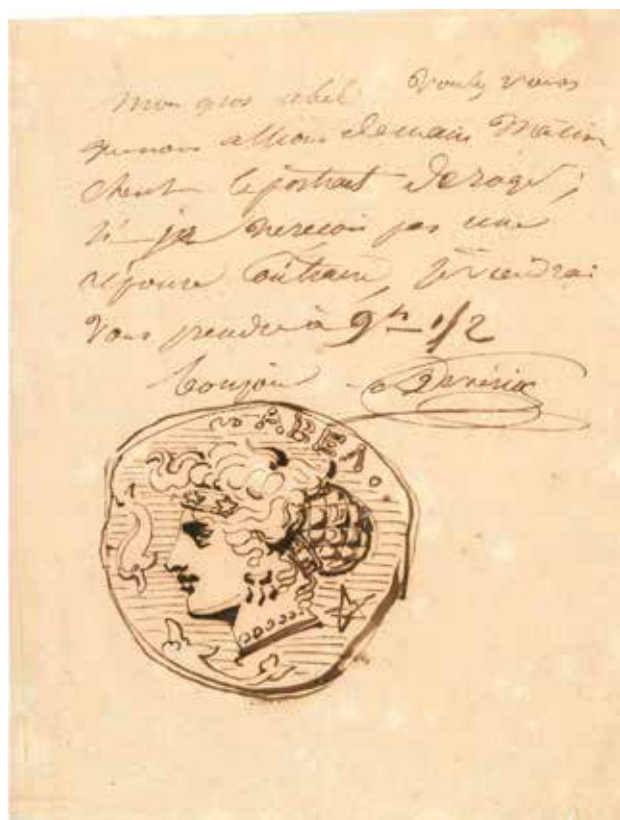 Mon gros abel Voulez vous
que nous allions demain Matin
le portrait de
si je ne reçois pas une
réponse Contraire, je viendrai
Vous prendre à 9h 1/2
bonjour
ABEΛ